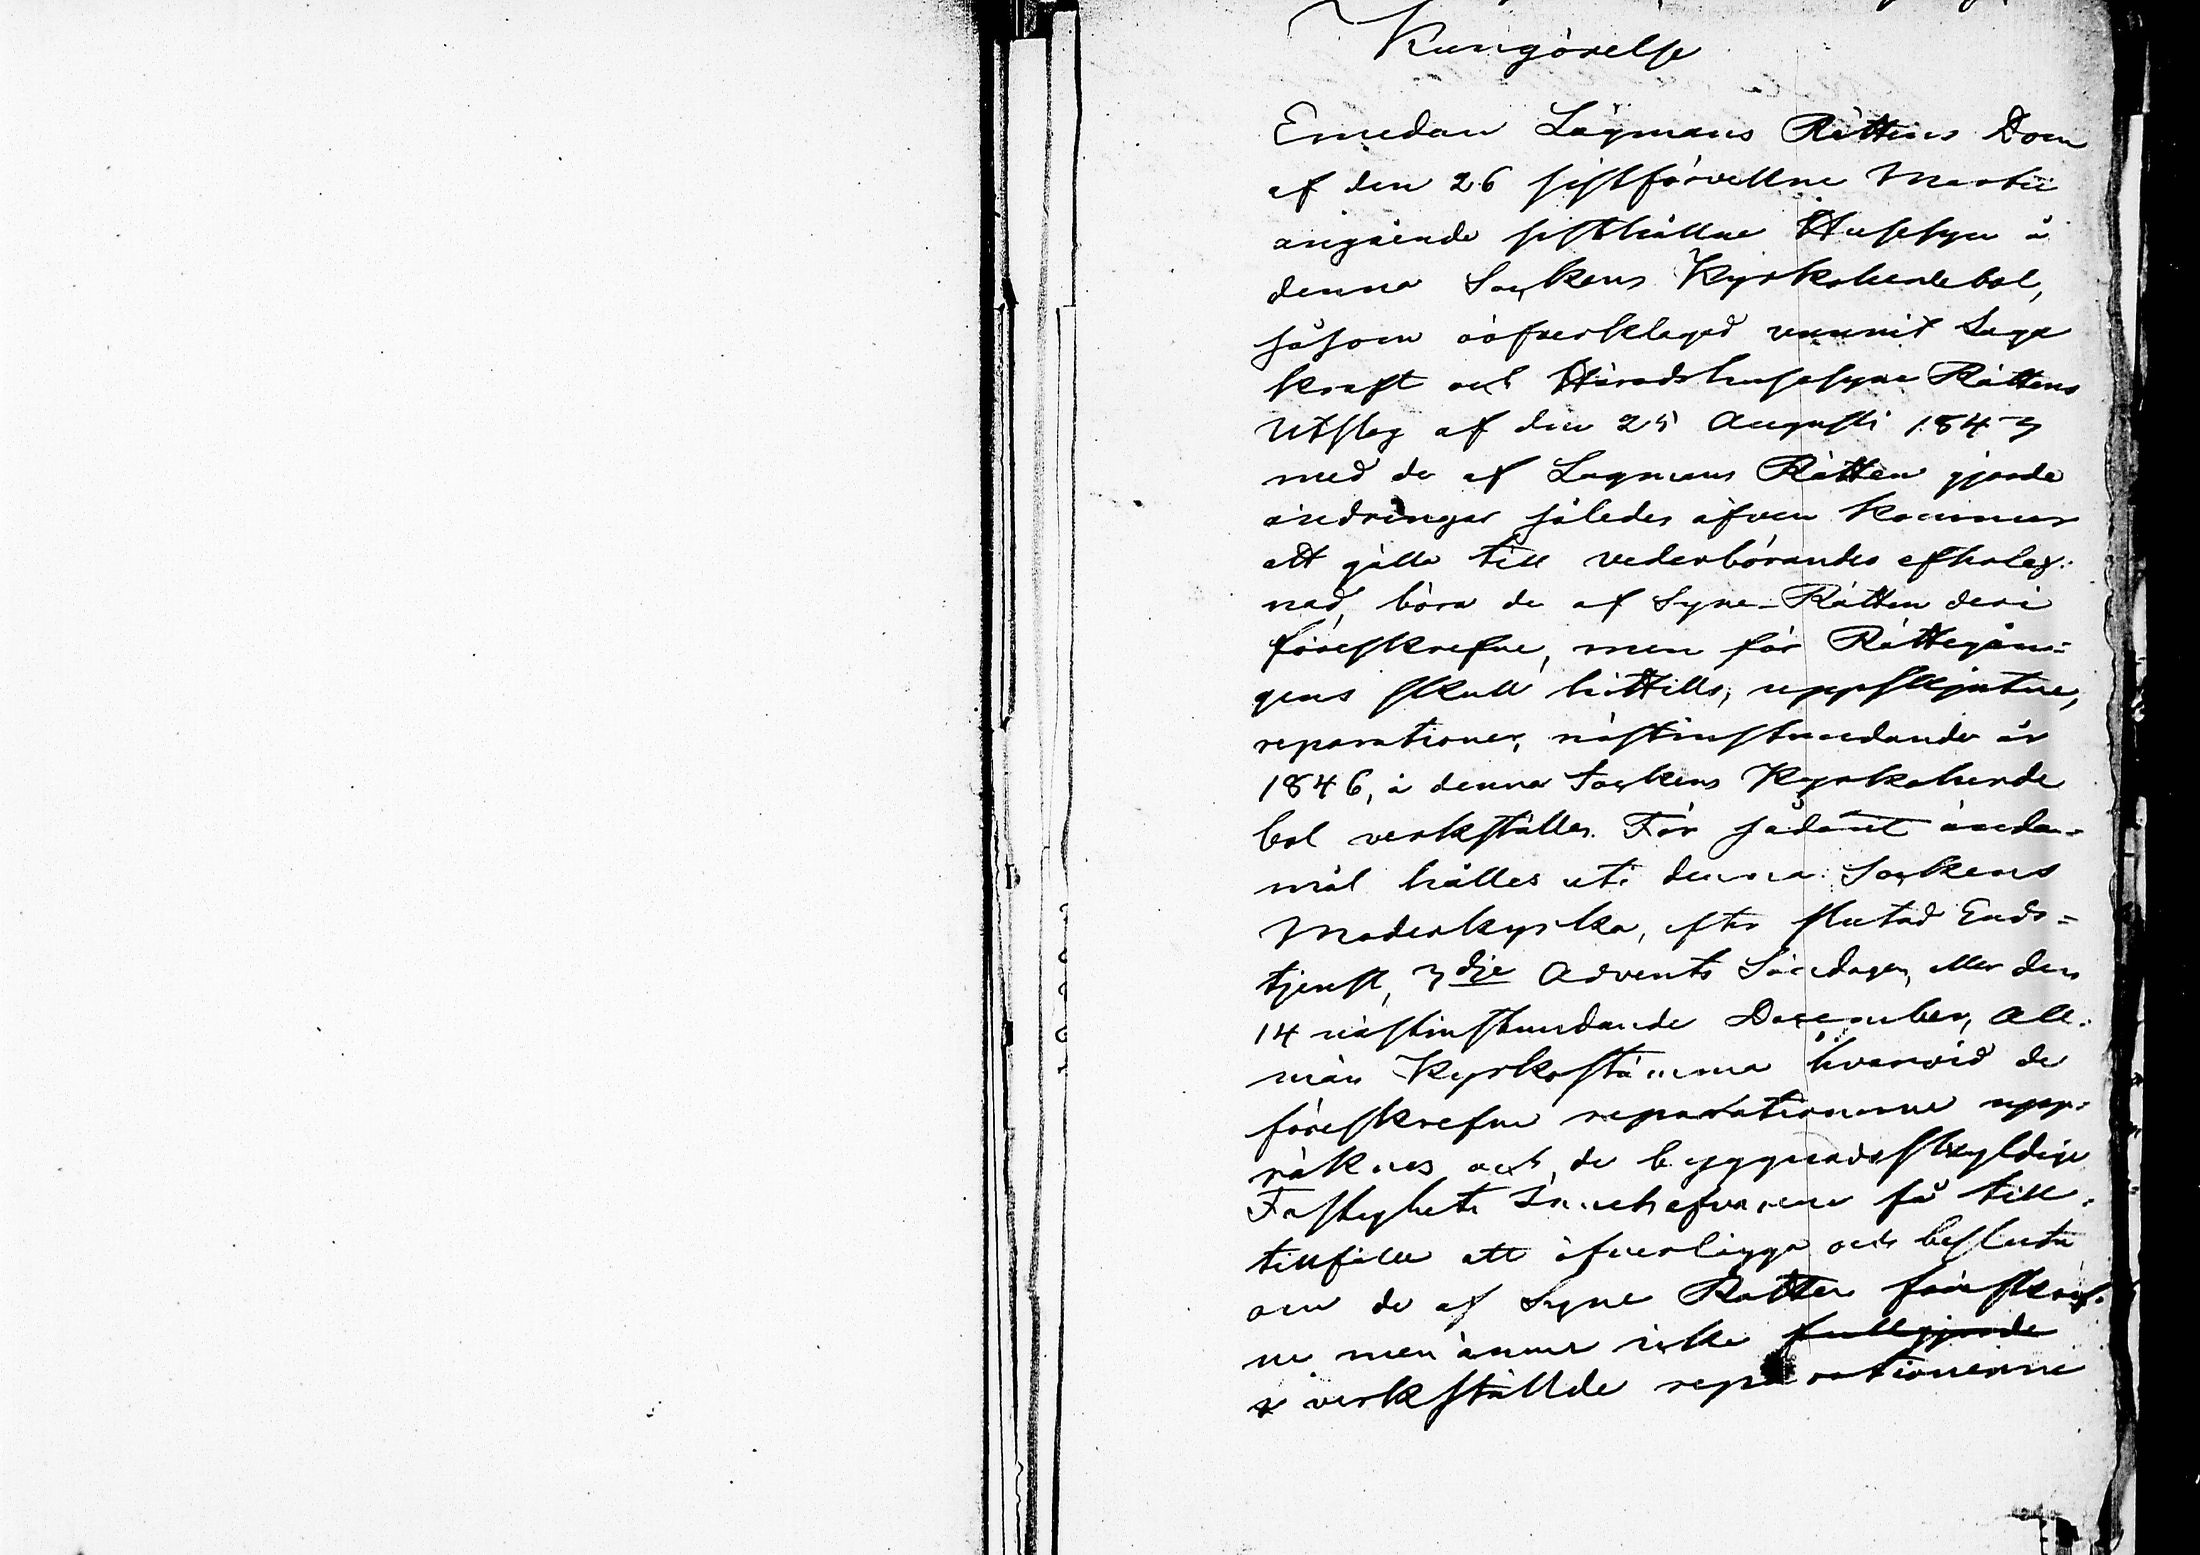 Kungörelse
Emedan Lagmans Rättens Dom
af den 26 sistförvekne Martii
angående sisthållne Husesyn å
denna Sockens Kyrkoherdebol,
såsom oöfverklagad vunnit Laga
kraft och Häradshusesyne Rättens
Utslag af den 25 Augusti 1843
med de af Lagmans Rätten gjorde
ändringar således äfven kommer
att gälla till vederbörandes efterlef-
nad, böra de af Syne-Rätten deri
föreskrefne, men för Rättegån-
gens skull hittills, uppskjutne,
reparationer, nästinstundande år
1846, å denna Sockens Kyrkoherde
bol verkställas. För sådant ända-
mål hålles uti denna Sockens
Moderkyrka, efter slutad Guds-
tjenst, 3dje Advents Söndagen, eller den
14 nästinstundande December, All-
män Kyrkostämma hvarvid de
föreskrefne reparationerne upp-
räknas och de byggnadsskyldige
Fastighets Innehafvarne få till-
tillfälle att öfverlägga och besluta
om de af Syne Rätten föreskref-
ne men ännu icke fullgjorde
verkställde reparationerne